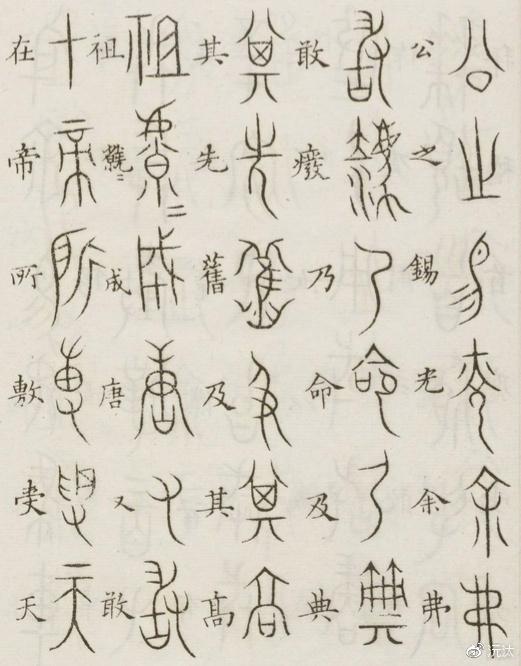 公之錫光余弗
敢癈乃命及典
其先舊及其髙
祖虩〻成唐又敢
在帝所敷受天
@沅汰